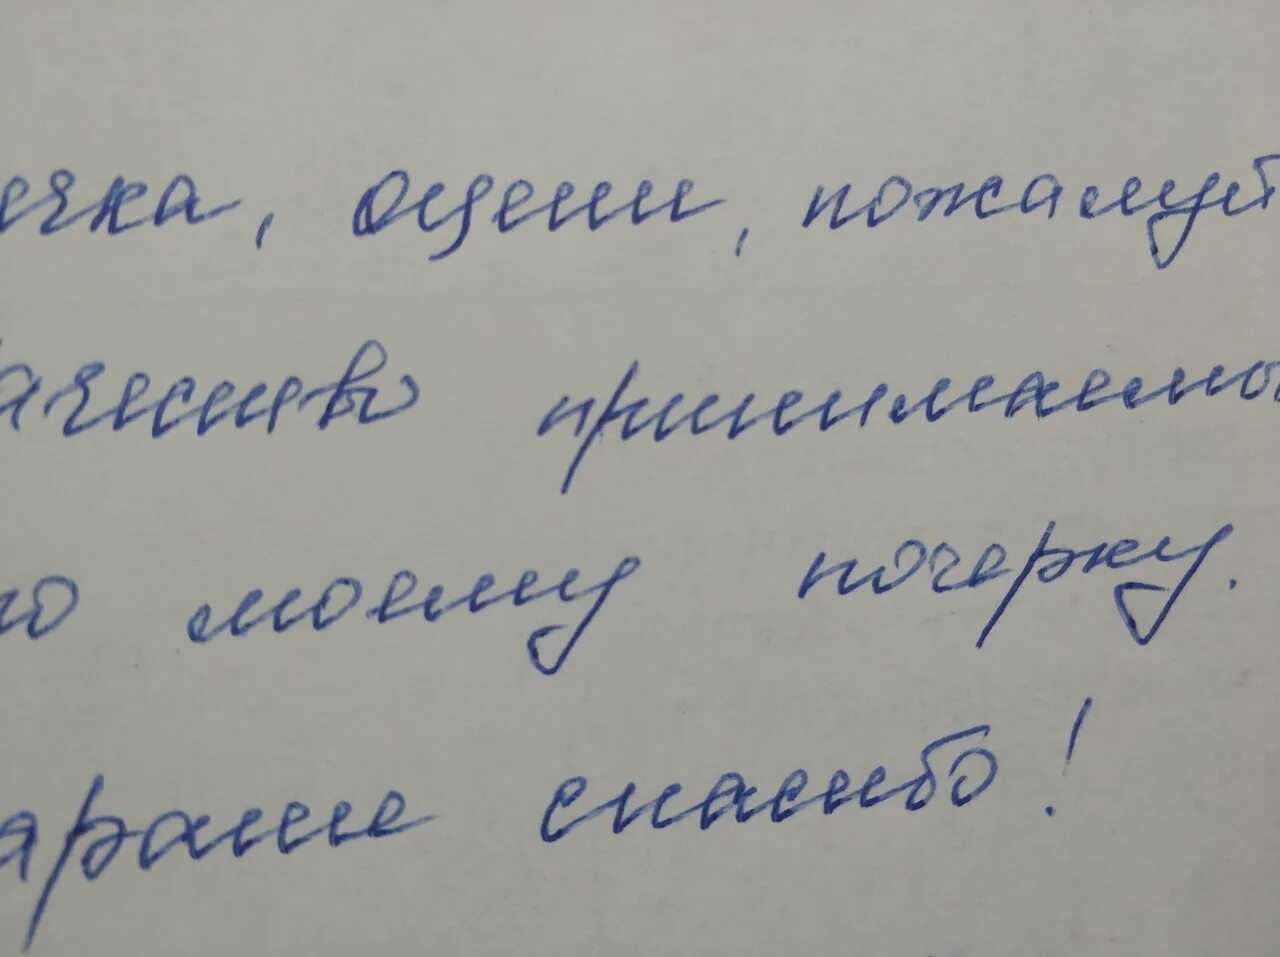 ечка, оцени, пожалуй
ачество принимаемо
по моему почерку.
аранее спасибо!